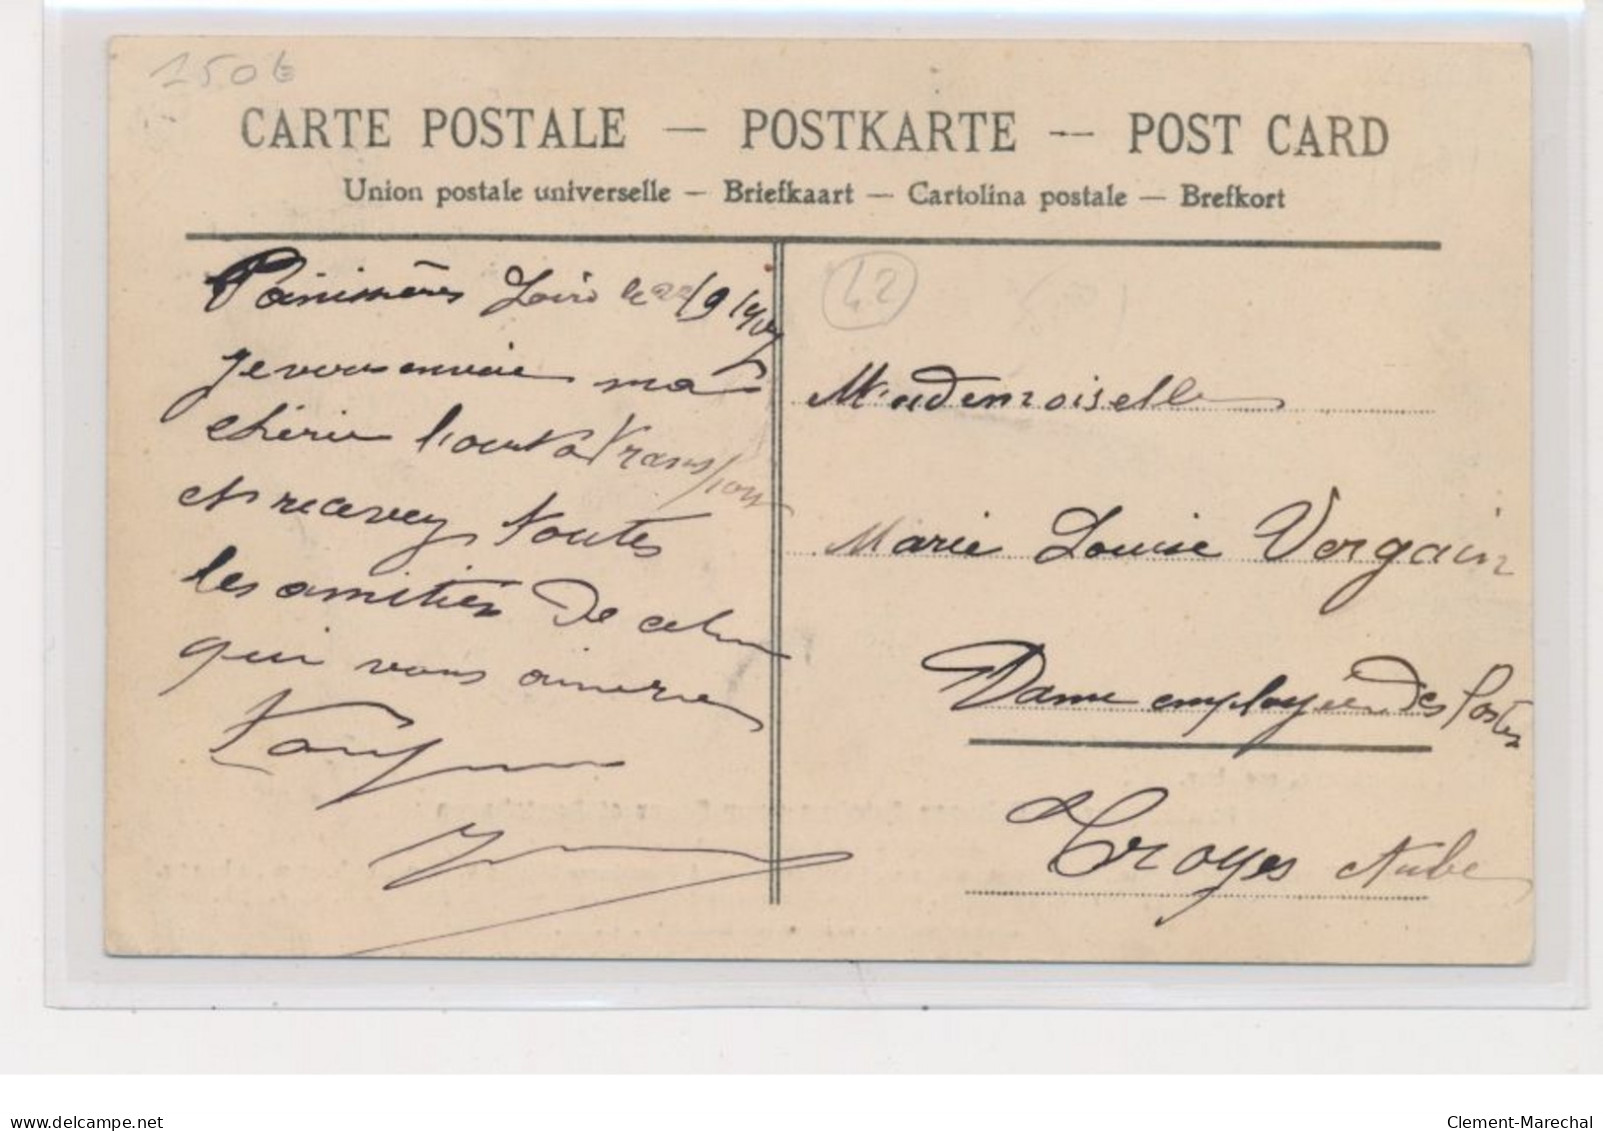 150€
CARTE POSTALE — POSTKARTE — POST CARD
Union postale universelle — Briefkaart — Cartolina postale — Brefkort
Panissières Loire le 22/9
je vous envoie ma
chérie
et recevez toutes
les amitiés de celui
qui vous aimera
42
Mademoiselle
Marie Louise Vergain
Dame employée des Postes
Troyes Aube
delcampe.net
Clement-Marechal